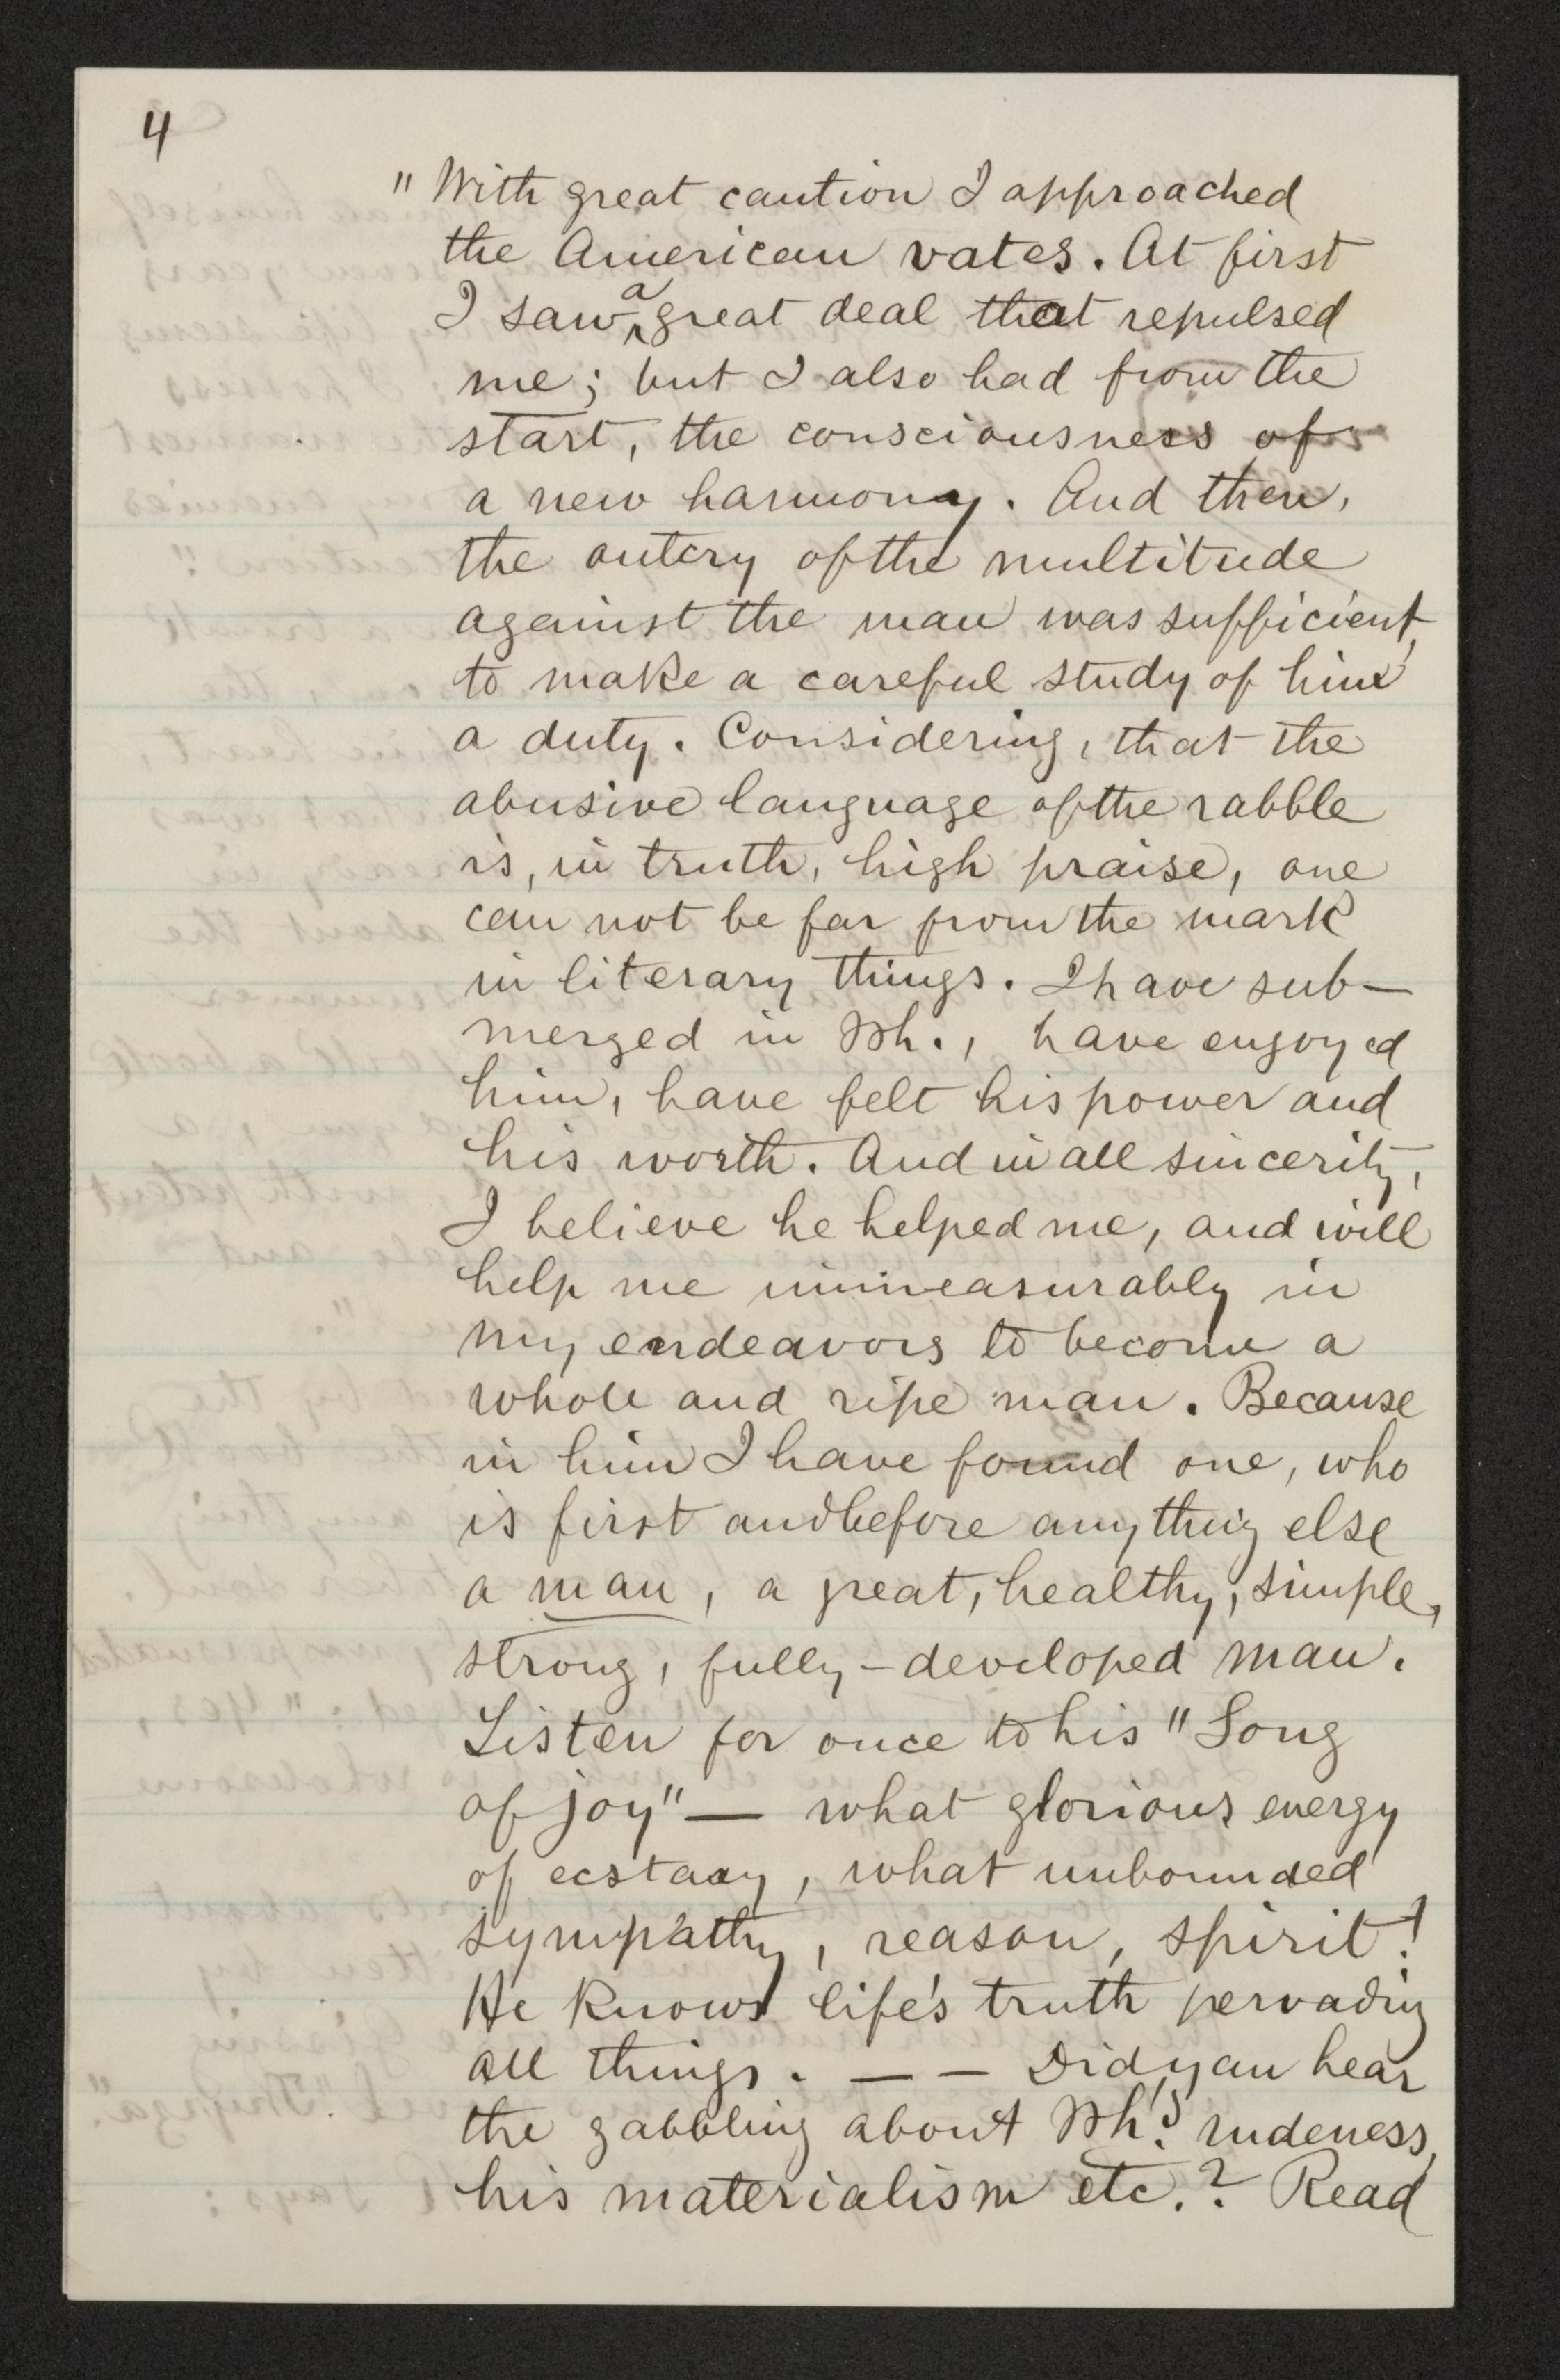 4
"With great caution I approached
the American vates. At first
I saw a great deal that repulsed
me; but I also had from the
start, the consciousness of
a new harmony. And then,
the outcry of the multitude
against the man was sufficient,
to make a careful study of him
a duty. Considering, that the
abusive language of the rabble
is, in truth, high praise, one
can not be far from the mark
in literary things. I have sub-
merged in Wh., have enjoyed
him, have felt his power and
his worth. And in all sincerity,
I believe he helped me, and will
help me immeasurably in
my endeavors to become a
whole and ripe man. Because
in him I have found one, who
is first and before anything else
a man, a great, healthy, simple,
strong, fully-developed man.
Listen for once to his "Song
of joy" — what glorious energy
of ecstasy, what unbounded
sympathy, reason, spirit!
He knows life's truth pervading
all things. — — Did you hear
the gabbling about Wh.'s rudeness,
his materialism etc.? Read